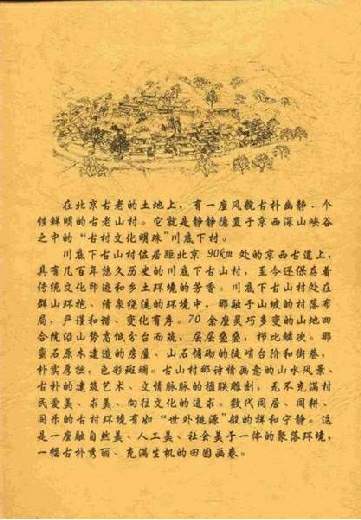 在北京古老的土地上，有一座风貌古朴幽静、个
性鲜明的古老山村。它就是静静隐置于京西深山峡谷
之中的“古村文化明珠”川底下村。
川底下古山村位居距北京90km处的京西古道上，
具有几百年悠久历史的川底下古山村，至今还保存着
传统文化印迹和乡土环境的芳香。川底下古山村处在
群山环抱、清泉绕流的环境中，那融于山坡的村落布
局，严谨和谐、变化有序。70余座灵巧多变的山地四
合院沿山势高低分台而筑、层层叠叠，栉比鳞次。那
蛮石原木建造的房屋、山石砌的台阶和街巷，
朴实厚拙，色彩斑斓。古山村那诗情画意的山水风景、
古朴的建筑艺术、文情脉脉的楹联雕刻，无不充满村
民爱美、求美、向往文化的追求。数代同居、同耕、
同作的古村环境有如“世外桃源”般的祥和宁静。这
是一座融自然美、人工美、社会美于一体的聚落环境，
一幅古朴秀丽、充满生机的田园画卷。